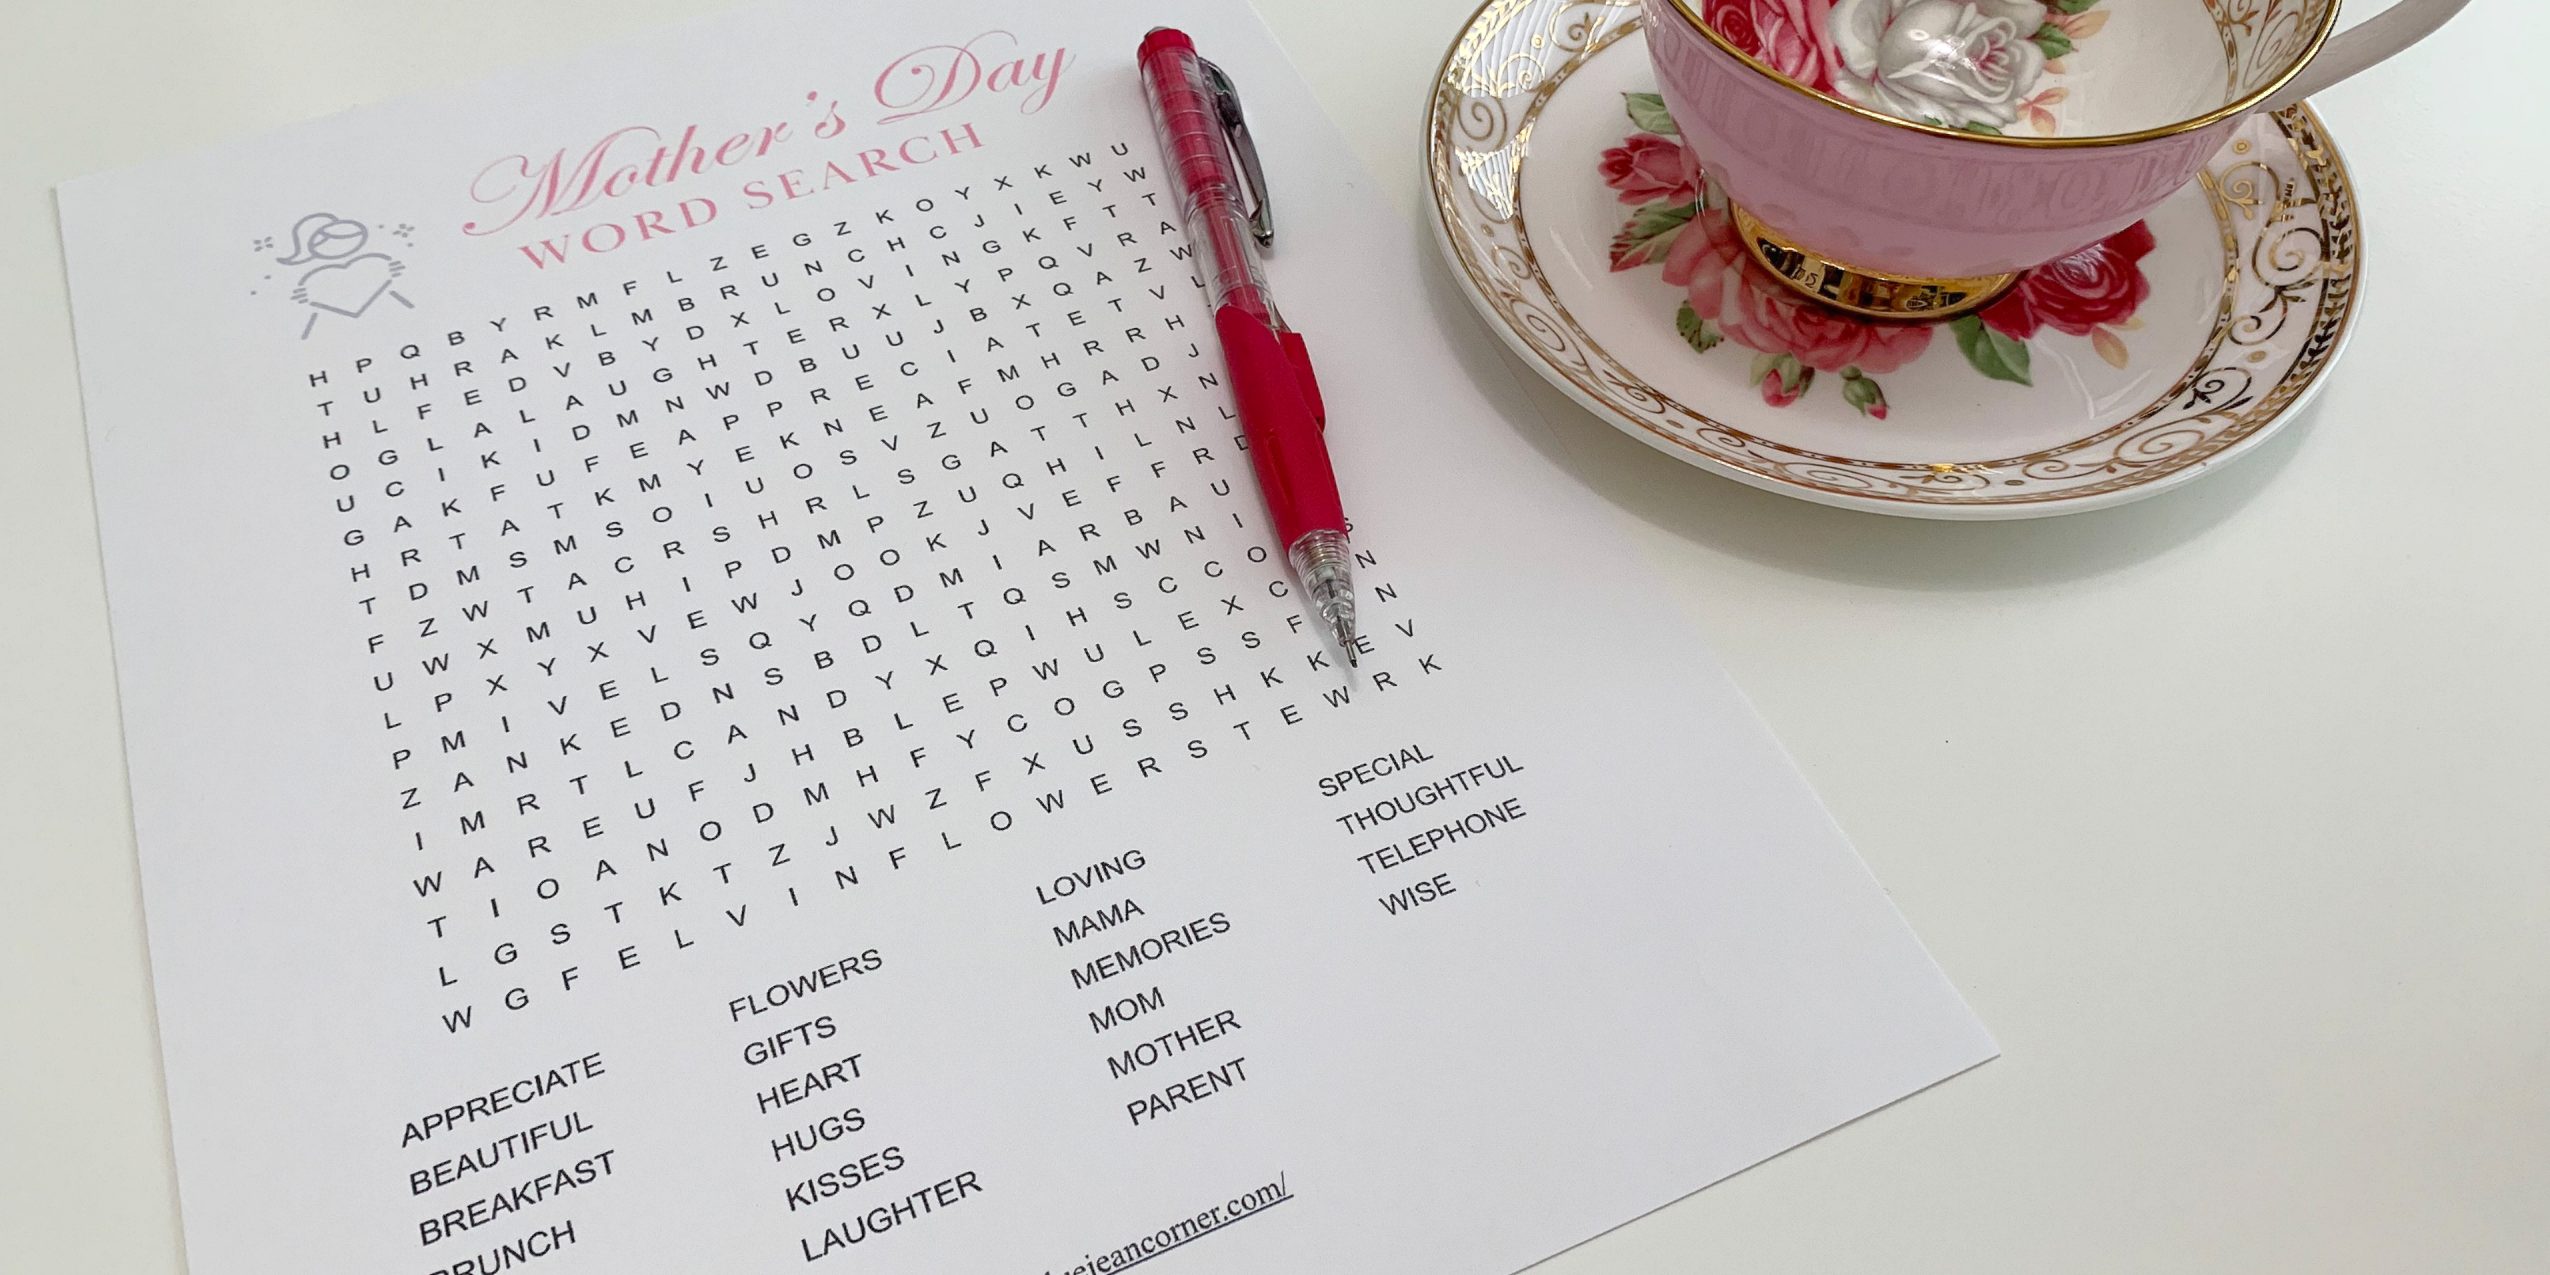 Mother's Day
WORD SEARCH
H P Q B Y R M F L Z E G Z K O Y X K W U
T U H R A K L M B R U N C H C J I E Y W
H L F E D V B Y D X L O V I N G K F T T
O G L A L A U G H T E R X L Y P Q V R A
U C I K I D M N W D B U U J B X Q A Z W
G A K F U F E A P P R E C I A T E T V L
H R T A T K M Y E K N E A F M H R R H
T D M S M S O I U O S V Z U O G A D J
F Z W T A C R S H R L S G A T T H X N
U W X M U H I P D M P Z U Q H I L N L
L P X Y X V E W J O O K J V E F F R D
P M I V E L S Q Y Q D M I A R B A U
Z A N K E D N S B D L T Q S M W N I
I M R T L C A N D Y X Q I H S C C O S
W A R E U F J H B L E P W U L E X C N
T I O A N O D M H F Y C O G P S S F N
L G S T K T Z J W Z F X U S S H K K E V
W G F E L V I N F L O W E R S T E W R K
APPRECIATE
BEAUTIFUL
BREAKFAST
BRUNCH
FLOWERS
GIFTS
HEART
HUGS
KISSES
LAUGHTER
LOVING
MAMA
MEMORIES
MOM
MOTHER
PARENT
SPECIAL
THOUGHTFUL
TELEPHONE
WISE
uejeancorner.com/